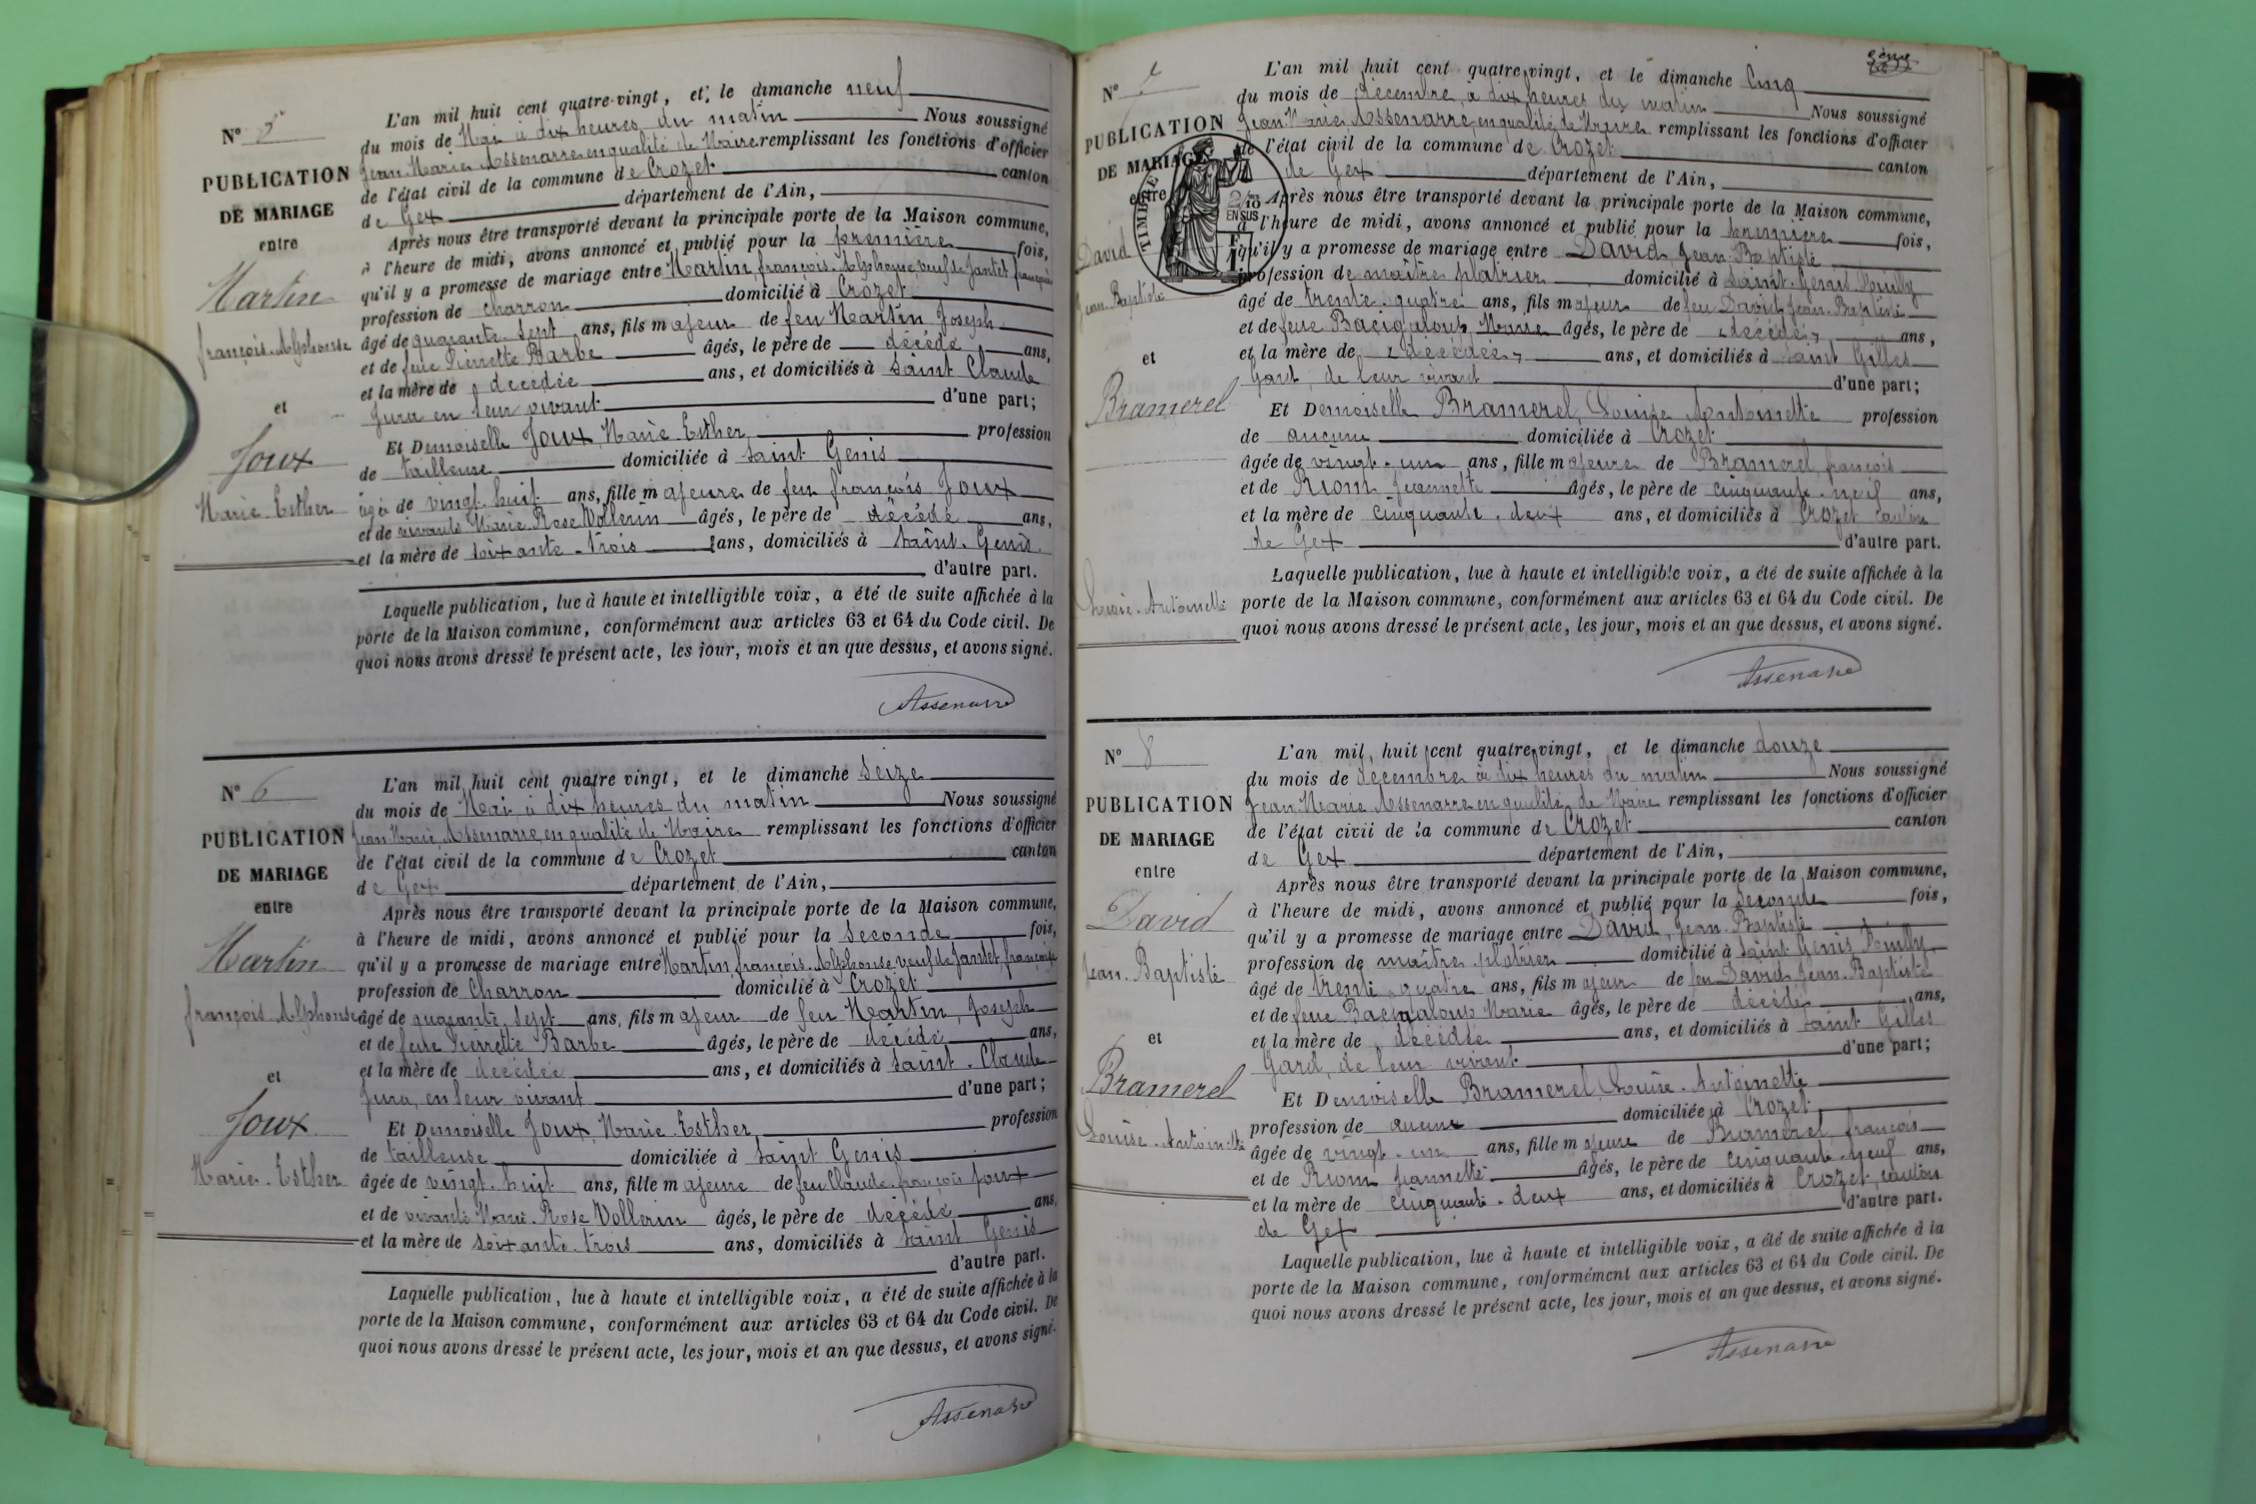 N° 5
PUBLICATION
DE MARIAGE
entre
Martin
françois-Alphonse
et
Joux
Marie-Esther
L'an mil huit cent quatre-vingt, et le dimanche neuf
du mois de Mai à dix heures du matin Nous soussigné
Jean Marie Assenarre en qualité de Maire remplissant les fonctions d'officier
de l'état civil de la commune de Crozet canton
de Gex département de l'Ain,
Après nous être transporté devant la principale porte de la Maison commune,
à l'heure de midi, avons annoncé et publié pour la première fois,
qu'il y a promesse de mariage entre Martin, françois-Alphonse, veuf de Jantet françoise
profession de charron domicilié à Crozet
âgé de quarante-sept ans, fils majeur de feu Martin Joseph
et de feue Pierrette Barbe âgés, le père de décédé ans,
et la mère de décédée ans, et domiciliés à Saint Claude
Jura en leur vivant d'une part;
Et Demoiselle Joux, Marie-Esther profession
de tailleuse domiciliée à Saint-Genis
âgée de vingt-huit ans, fille majeure de feu françois Joux
et de vivante Marie-Rose Vollerin âgés, le père de décédé ans,
et la mère de soixante-trois ans, domiciliés à Saint-Genis
d'autre part.
Laquelle publication, lue à haute et intelligible voix, a été de suite affichée à la
porte de la Maison commune, conformément aux articles 63 et 64 du Code civil. De
quoi nous avons dressé le présent acte, les jour, mois et an que dessus, et avons signé.
Assenarre
N° 6
PUBLICATION
DE MARIAGE
entre
Martin
françois-Alphonse
et
Joux
Marie-Esther
L'an mil huit cent quatre vingt, et le dimanche seize
du mois de Mai à dix heures du matin Nous soussigné
Jean Marie Assenarre en qualité de Maire remplissant les fonctions d'officier
de l'état civil de la commune de Crozet canton
de Gex département de l'Ain,
Après nous être transporté devant la principale porte de la Maison commune,
à l'heure de midi, avons annoncé et publié pour la seconde fois,
qu'il y a promesse de mariage entre Martin, françois-Alphonse veuf de Jantet, françoise
profession de charron domicilié à Crozet
âgé de quarante-sept ans, fils majeur de feu Martin, Joseph
et de feue Pierrette Barbe âgés, le père de décédé ans,
et la mère de décédée ans, et domiciliés à Saint-Claude
Jura, en leur vivant d'une part;
Et Demoiselle Joux, Marie-Esther profession
de tailleuse domiciliée à Saint Genis
âgée de vingt-huit ans, fille majeure de feu Claude-françois Joux
et de vivante Marie-Rose Vollerin âgés, le père de décédé ans,
et la mère de soixante-trois ans, domiciliés à Saint Genis
d'autre part.
Laquelle publication, lue à haute et intelligible voix, a été de suite affichée à la
porte de la Maison commune, conformément aux articles 63 et 64 du Code civil. De
quoi nous avons dressé le présent acte, les jour, mois et an que dessus, et avons signé.
Assenarre
N° 7
PUBLICATION
DE MARIAGE
entre
TIMBRE
2/10
EN SUS
David
Jean-Baptiste
et
Bramerel
Louise-Antoinette
L'an mil huit cent quatre-vingt, et le dimanche Cinq
du mois de décembre, à dix heures du matin Nous soussigné
Jean Marie Assenarre, en qualité de Maire remplissant les fonctions d'officier
de l'état civil de la commune de Crozet canton
de Gex département de l'Ain,
Après nous être transporté devant la principale porte de la Maison commune,
à l'heure de midi, avons annoncé et publié pour la première fois,
qu'il y a promesse de mariage entre David Jean-Baptiste
profession de maître plâtrier domicilié à Saint-Genis Pouilly
âgé de trente-quatre ans, fils majeur de feu David Jean-Baptiste
et de feue Bacigaloup Marie âgés, le père de décédé ans,
et la mère de décédée ans, et domiciliés à Saint Gilles
Gard, de leur vivant d'une part;
Et Demoiselle Bramerel, Louise Antoinette profession
de aucune domiciliée à Crozet
âgée de vingt-un ans, fille majeure de Bramerel, françois
et de Riom Jeannette âgés, le père de cinquante-neuf ans,
et la mère de cinquante-deux ans, et domiciliés à Crozet canton
de Gex d'autre part.
Laquelle publication, lue à haute et intelligible voix, a été de suite affichée à la
porte de la Maison commune, conformément aux articles 63 et 64 du Code civil. De
quoi nous avons dressé le présent acte, les jour, mois et an que dessus, et avons signé.
Assenarre
N° 8
PUBLICATION
DE MARIAGE
entre
David
Jean-Baptiste
et
Bramerel
Louise-Antoinette
L'an mil huit cent quatre-vingt, et le dimanche douze
du mois de décembre à dix heures du matin Nous soussigné
Jean Marie Assenarre en qualité de Maire remplissant les fonctions d'officier
de l'état civil de la commune de Crozet canton
de Gex département de l'Ain,
Après nous être transporté devant la principale porte de la Maison commune,
à l'heure de midi, avons annoncé et publié pour la seconde fois,
qu'il y a promesse de mariage entre David, Jean-Baptiste
profession de maître plâtrier domicilié à Saint-Genis Pouilly
âgé de trente-quatre ans, fils majeur de feu David Jean-Baptiste
et de feue Bacigaloup Marie âgés, le père de décédé ans,
et la mère de décédée ans, et domiciliés à Saint Gilles
Gard, de leur vivant d'une part;
Et Demoiselle Bramerel, Louise-Antoinette
profession de aucune domiciliée à Crozet
âgée de vingt-un ans, fille majeure de Bramerel, françois
et de Riom Jeannette âgés, le père de cinquante-neuf ans,
et la mère de cinquante-deux ans, et domiciliés à Crozet, canton
de Gex d'autre part.
Laquelle publication, lue à haute et intelligible voix, a été de suite affichée à la
porte de la Maison commune, conformément aux articles 63 et 64 du Code civil. De
quoi nous avons dressé le présent acte, les jour, mois et an que dessus, et avons signé.
Assenarre